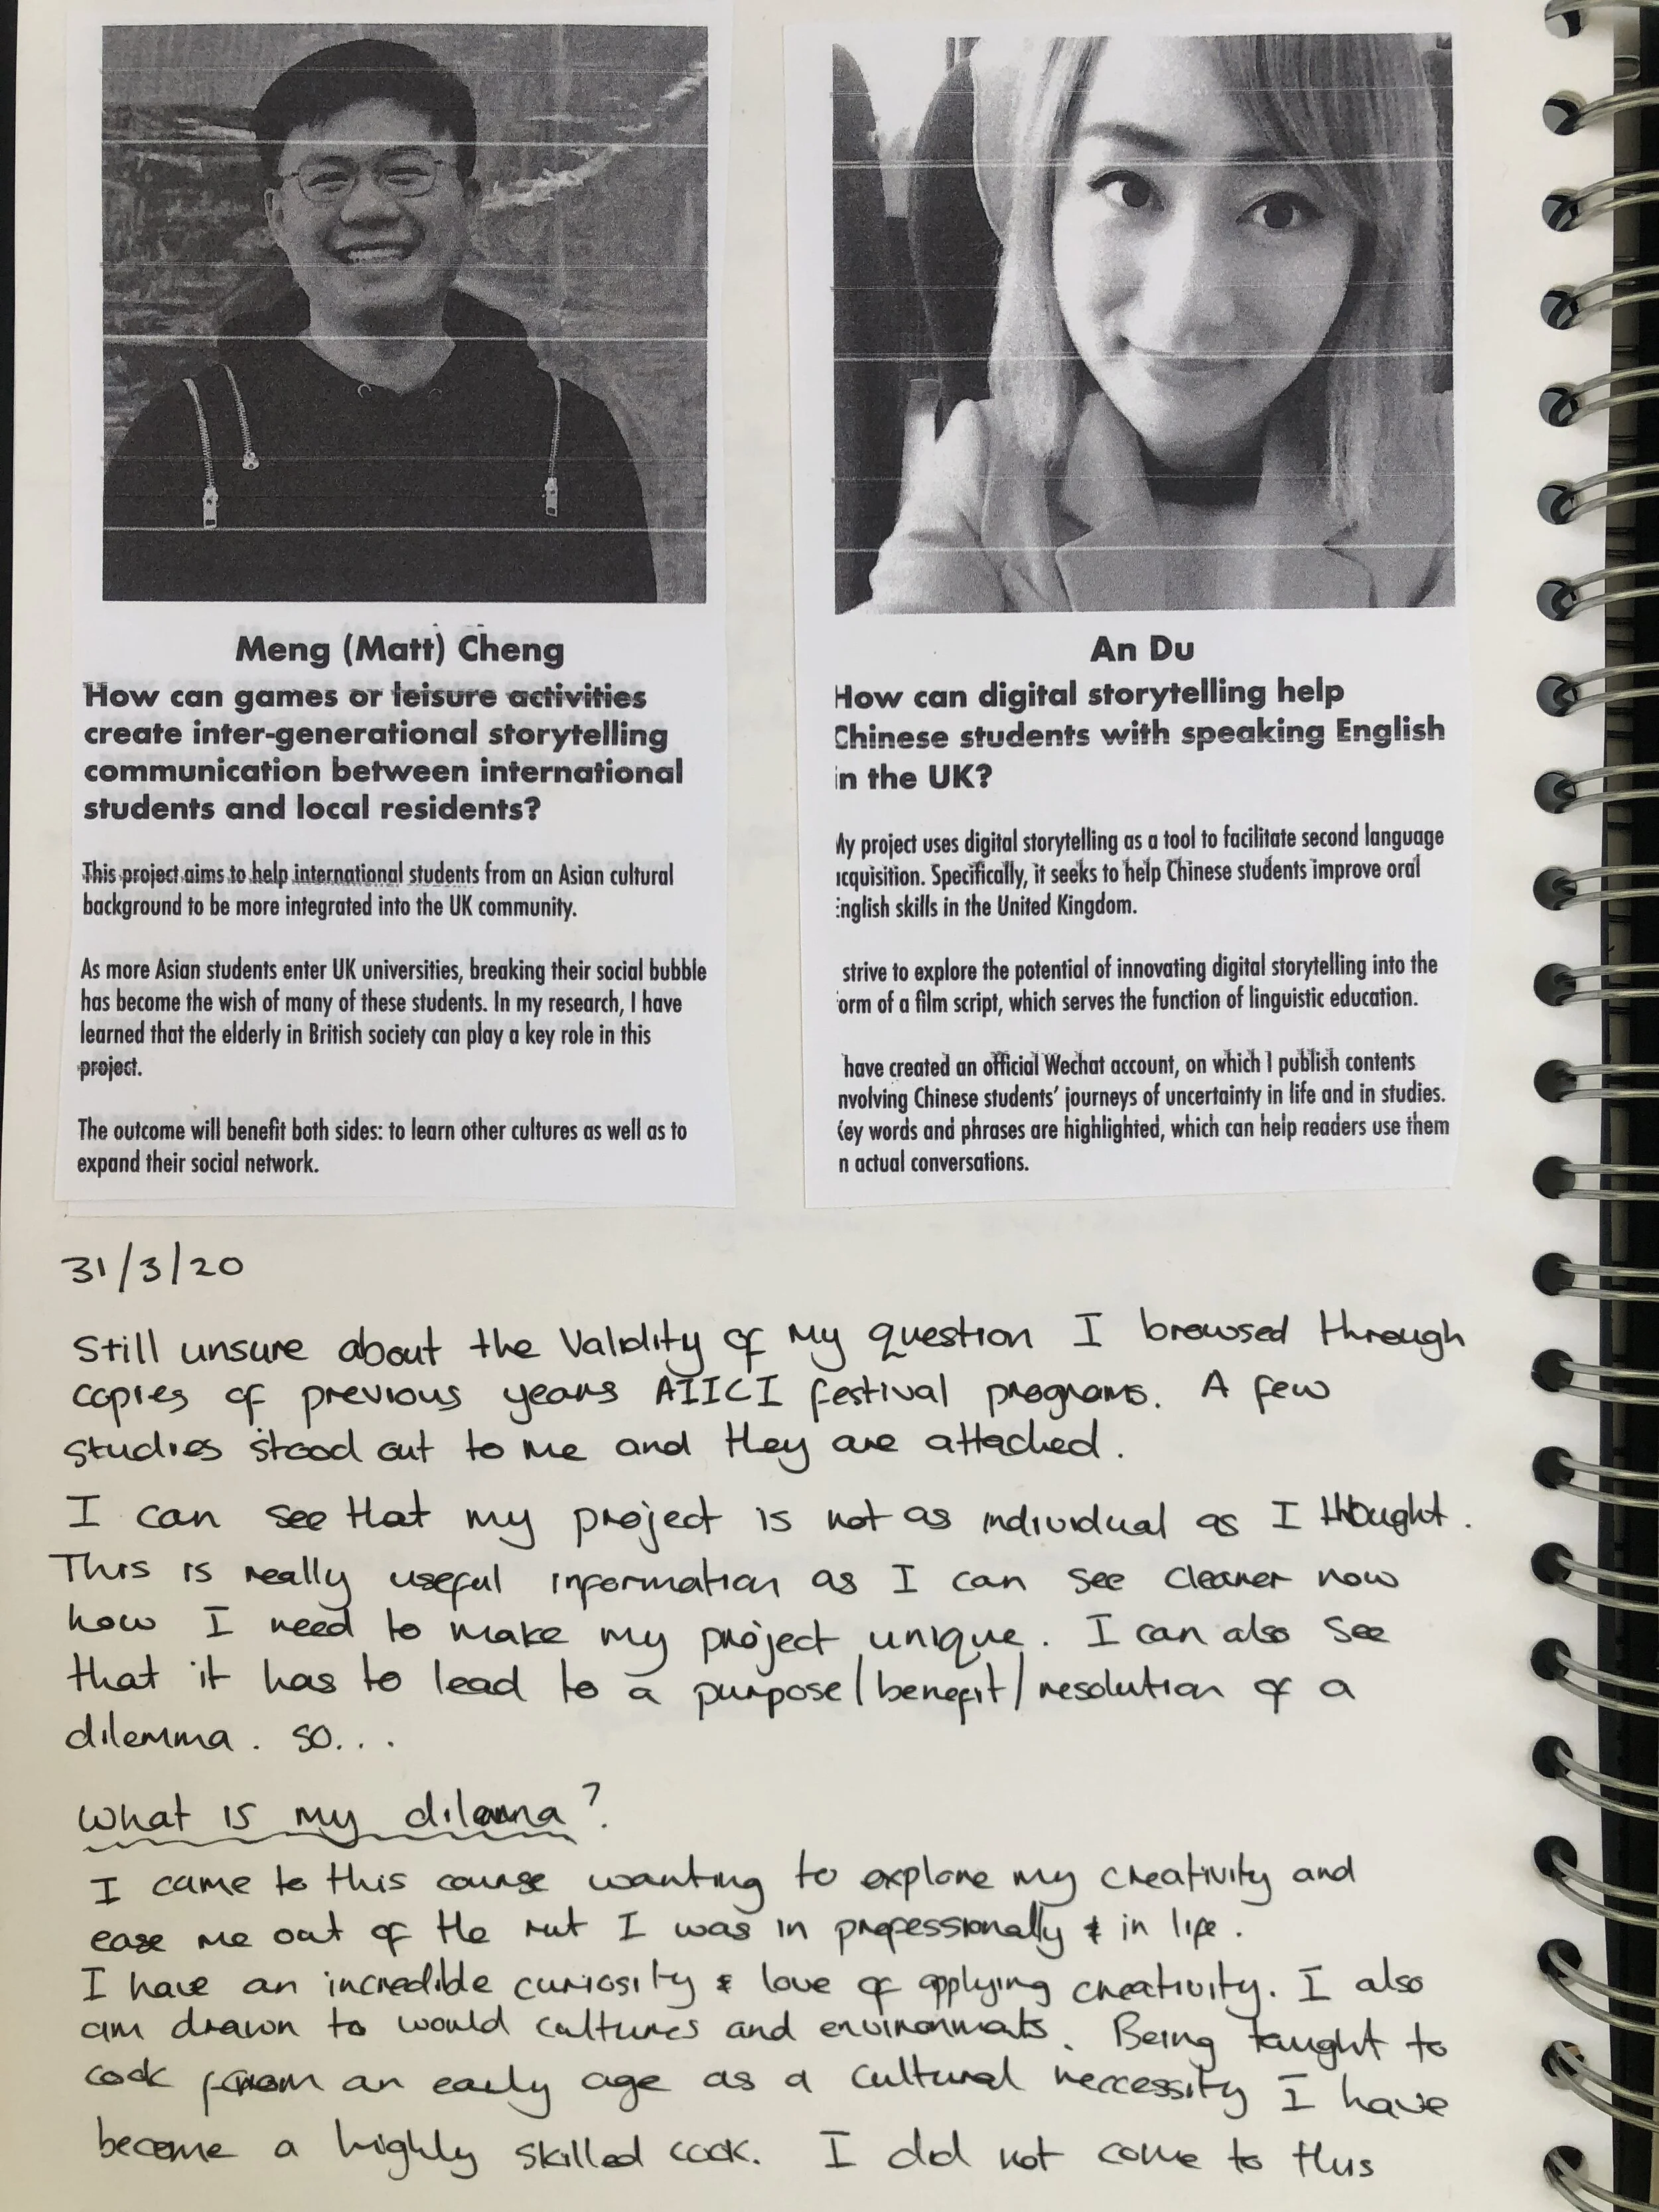 Meng (Matt) Cheng
How can games or leisure activities
create inter-generational storytelling
communication between international
students and local residents?
This project aims to help international students from an Asian cultural
background to be more integrated into the UK community.
As more Asian students enter UK universities, breaking their social bubble
has become the wish of many of these students. In my research, I have
learned that the elderly in British society can play a key role in this
project.
The outcome will benefit both sides: to learn other cultures as well as to
expand their social network.
An Du
How can digital storytelling help
Chinese students with speaking English
in the UK?
My project uses digital storytelling as a tool to facilitate second language
acquisition. Specifically, it seeks to help Chinese students improve oral
English skills in the United Kingdom.
strive to explore the potential of innovating digital storytelling into the
form of a film script, which serves the function of linguistic education.
have created an official Wechat account, on which I publish contents
nvolving Chinese students' journeys of uncertainty in life and in studies.
Key words and phrases are highlighted, which can help readers use them
n actual conversations.
31/3/20
Still unsure about the validity of my question I browsed through
copies of previous years AIICI festival programs. A few
studies stood out to me and they are attached.
I can see that my project is not as individual as I thought.
This is really useful information as I can see clearer now
how I need to make my project unique. I can also see
that it has to lead to a purpose/benefit/resolution of a
dilemma. so...
What is my dilemma?
I came to this course wanting to explore my creativity and
ease me out of the rut I was in professionally & in life.
I have an incredible curiosity & love of applying creativity. I also
am drawn to would cultures and environmats. Being taught to
cook from an early age as a cultural neccessity I have
become a highly skilled cook. I did not come to this